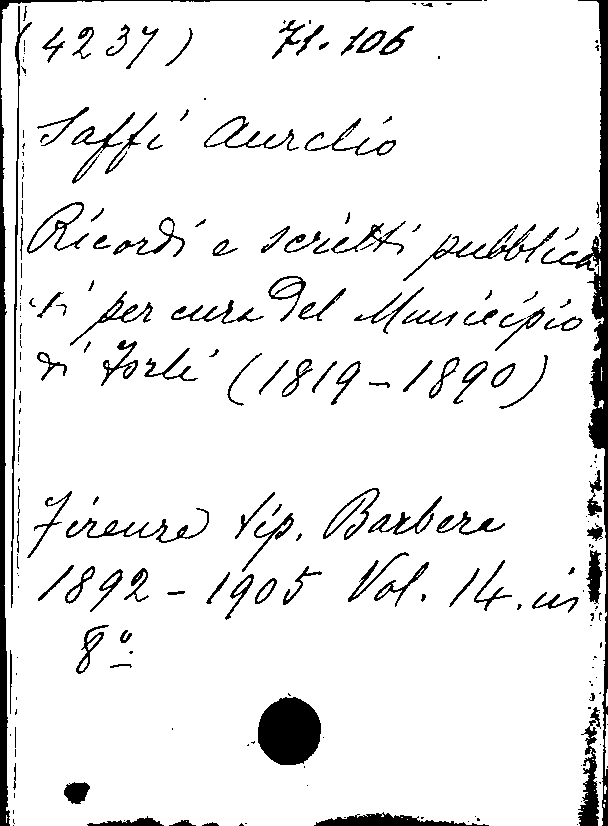 (4237) 71.106
Saffi Aurelio
Ricordi e scritti pubblica
ti per cura del Municipio
di Forlì (1819-1890)
Firenze tip. Barbera
1892-1905 Vol. 14. in
8º